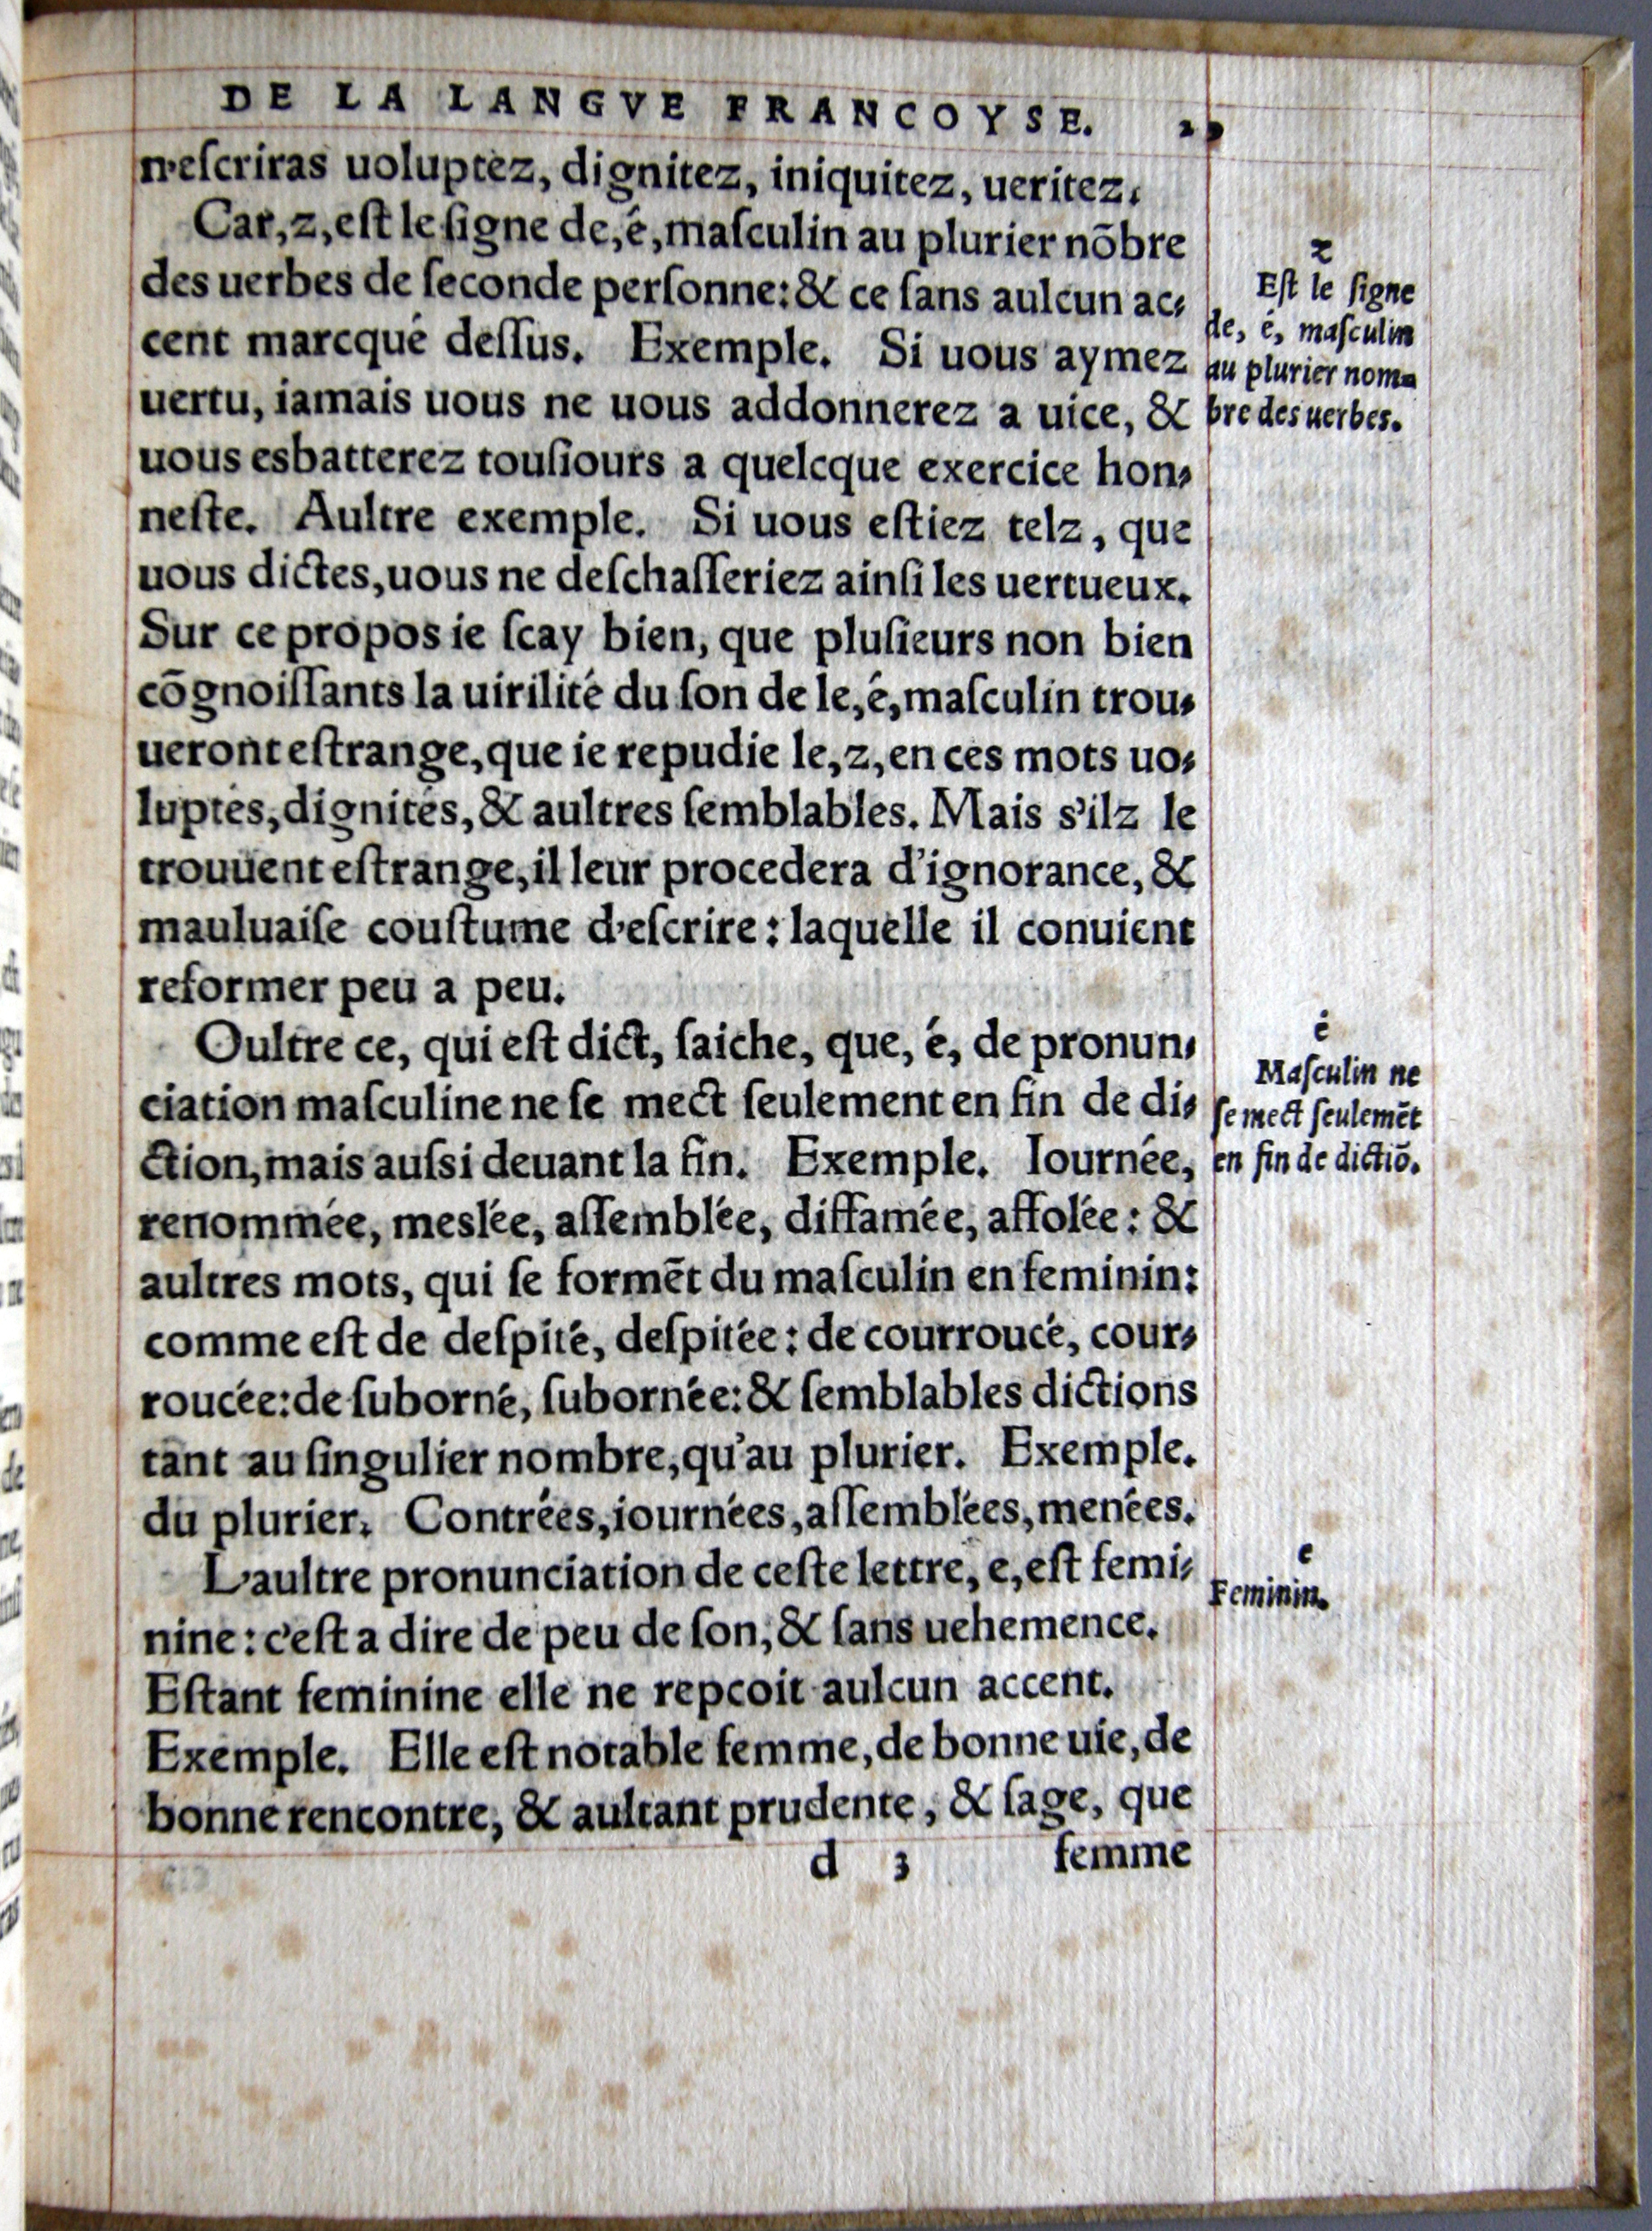 DE LA LANGVE FRANCOYSE.
n'eſcriras uoluptez, dignitez, iniquitez, ueritez.
Car, z, eſt le ſigne de, é, maſculin au plurier nõbre
des uerbes de ſeconde perſonne: & ce ſans aulcun ac-
cent marcqué deſſus. Exemple. Si uous aymez
uertu, iamais uous ne uous addonnerez a uice, &
uous esbatterez touſiours a quelcque exercice hon-
neſte. Aultre exemple. Si uous eſtiez telz, que
uous dictes, uous ne deſchaſſeriez ainſi les uertueux.
Sur ce propos ie ſcay bien, que pluſieurs non bien
cõgnoiſſants la uirilité du ſon de le, é, maſculin trou-
ueront eſtrange, que ie repudie le, z, en ces mots uo-
luptés, dignités, & aultres ſemblables. Mais s'ilz le
trouuent eſtrange, il leur procedera d'ignorance, &
mauluaiſe couſtume d'eſcrire: laquelle il conuient
reformer peu a peu.
Oultre ce, qui eſt dict, ſaiche, que, é, de pronun-
ciation maſculine ne ſe mect ſeulement en fin de di-
ction, mais auſsi deuant la fin. Exemple. Iournée,
renommée, meslée, aſſemblée, diffamée, affolée: &
aultres mots, qui ſe formẽt du maſculin en feminin:
comme eſt de deſpité, deſpitée: de courroucé, cour-
roucée: de ſuborné, ſubornée: & ſemblables dictions
tant au ſingulier nombre, qu'au plurier. Exemple.
du plurier. Contrées, iournées, aſſemblées, menées.
L'aultre pronunciation de ceſte lettre, e, eſt femi-
nine: c'eſt a dire de peu de ſon, & ſans uehemence.
Eſtant feminine elle ne repcoit aulcun accent.
Exemple. Elle eſt notable femme, de bonne uie, de
bonne rencontre, & aultant prudente, & ſage, que
d 3 femme
z
Eſt le ſigne
de, é, maſculin
au plurier nom-
bre des uerbes.
é
Maſculin ne
ſe mect ſeulemẽt
en fin de dictiõ.
e
Feminin.